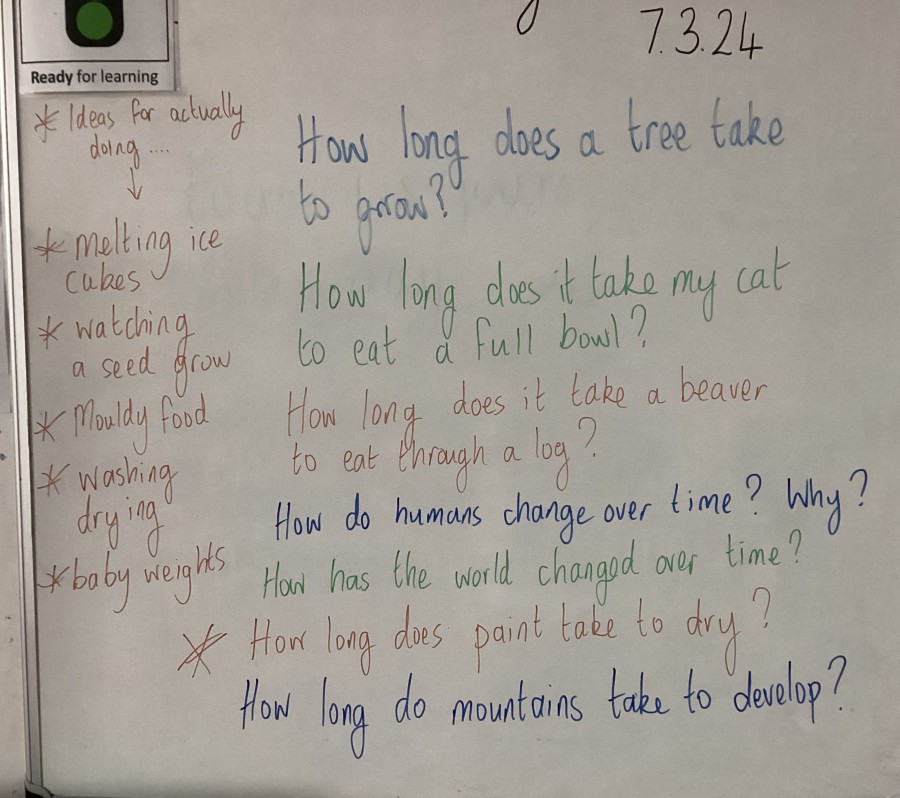 7.3.24
Ready for learning
* Ideas for actually
doing ....
↓
* melting ice
cubes
* watching
a seed grow
* Mouldy food
* washing
drying
* baby weights
How long does a tree take
to grow?
How long does it take my cat
to eat a full bowl?
How long does it take a beaver
to eat through a log?
How do humans change over time? Why?
How has the world changed over time?
* How long does paint take to dry?
How long do mountains take to develop?